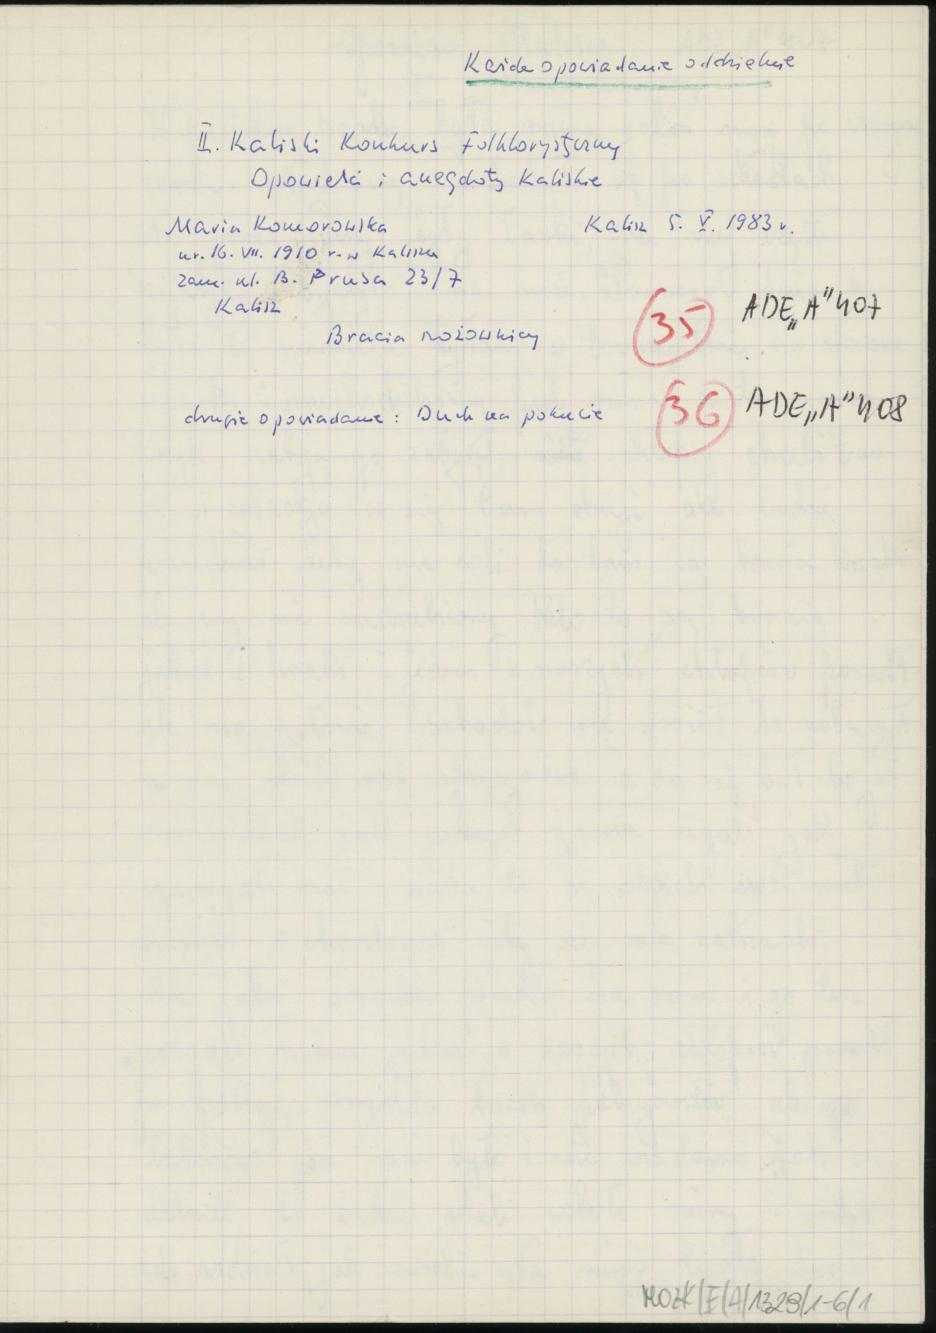 Każde opowiadanie oddzielnie
II. Kaliski Konkurs Folklorystyczny
Opowieści i anegdoty Kaliskie
Maria Komorowska Kalisz 5. V. 1983 r.
ur. 16. VII. 1910 r. w Kaliszu
zam. ul. B. Prusa 23/7
Kalisz
Bracia nożownicy
35 ADE„A” 407
drugie opowiadanie: Duch na pokucie
36 ADE„A” 408
MOZK/E/A/1329/1-6/1